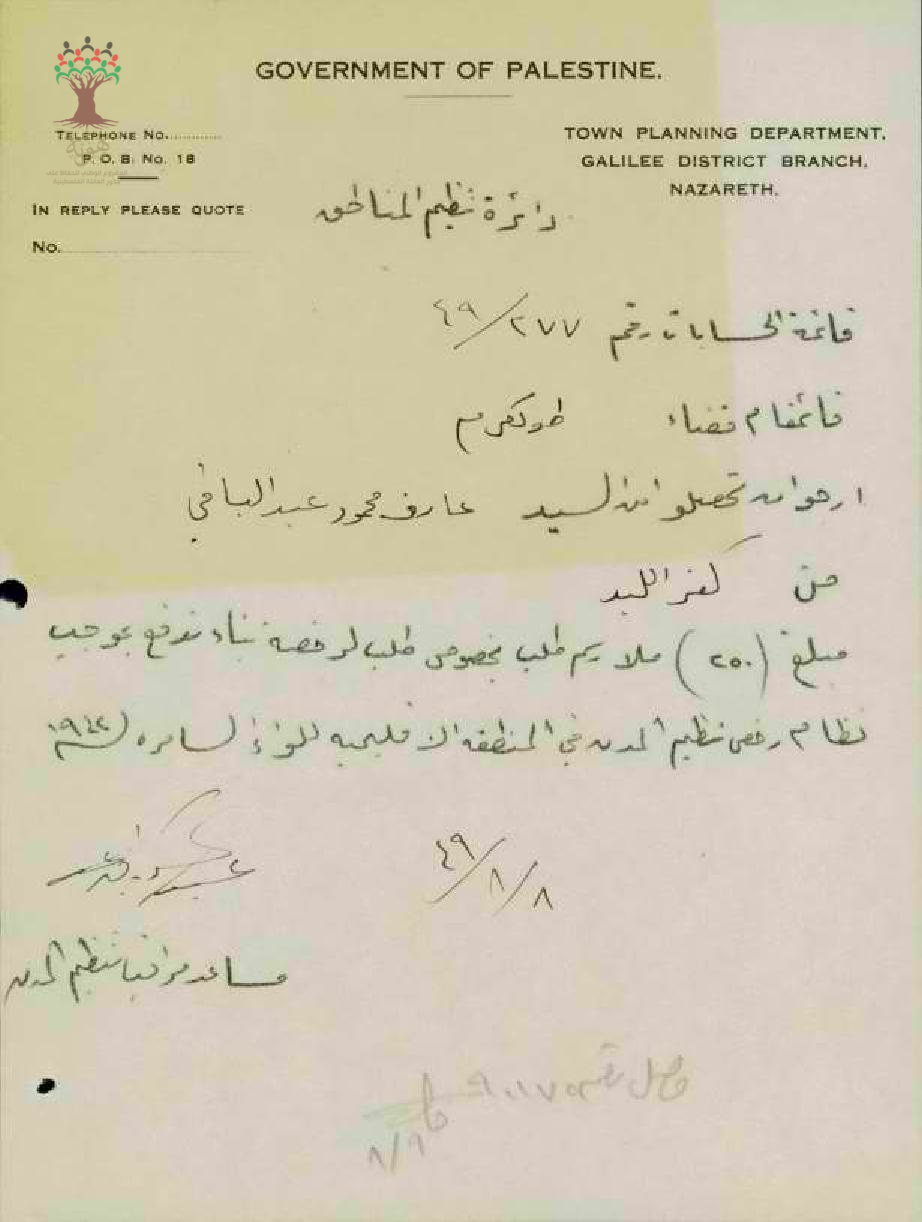 GOVERNMENT OF PALESTINE.
TELEPHONE NO.............
P. O. B. No. 18
TOWN PLANNING DEPARTMENT,
GALILEE DISTRICT BRANCH,
NAZARETH.
IN REPLY PLEASE QUOTE
No.
دائرة تنظيم المناطق
قائمة الحسابات رقم ٢٧٧/٤٩
قائمقام قضاء طولكرم
ارجو ان تحصلوا من السيد عارف محمود عبد الباقي
من كفر اللبد
مبلغ (٢٥٠) ملا رسم طلب بخصوص طلب لرخصة بناء تدفع بموجب
نظام رخص تنظيم المدن في المنطقة الاقليمية للواء السامره لسنة ١٩٤٢
٨/٨/٤٩
مساعد مراقب تنظيم المدن